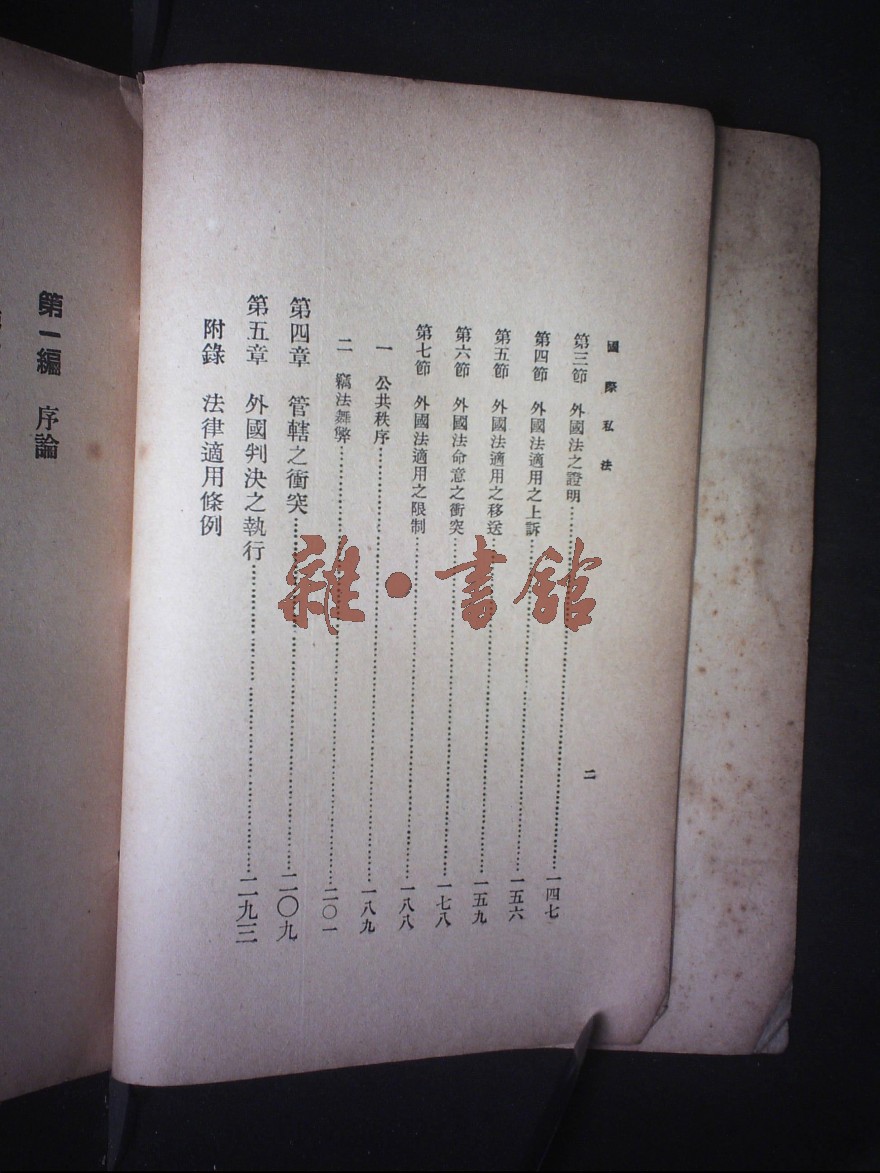 國際私法
二
第三節　外國法之證明……一四七
第四節　外國法適用之上訴……一五六
第五節　外國法適用之移送……一五九
第六節　外國法命意之衝突……一七八
第七節　外國法適用之限制……一八八
一　公共秩序……一八九
二　竊法舞弊……二〇一
第四章　管轄之衝突……二〇九
第五章　外國判決之執行……二九三
附錄　法律適用條例
第一編　序論
雜·書館